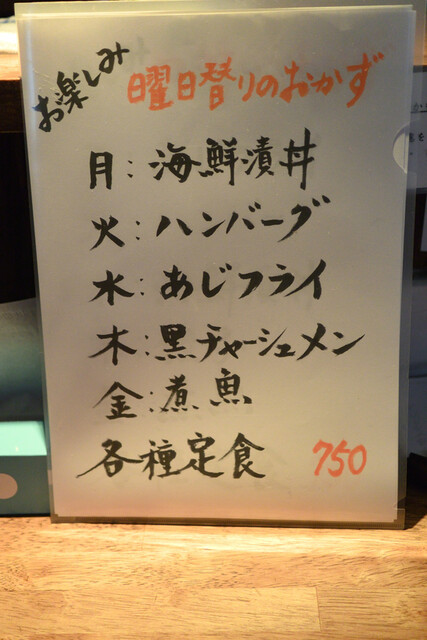 お楽しみ
曜日替りのおかず
月:海鮮漬丼
火:ハンバーグ
水:あじフライ
木:黒チャーシューメン
金:煮魚
各種定食 750